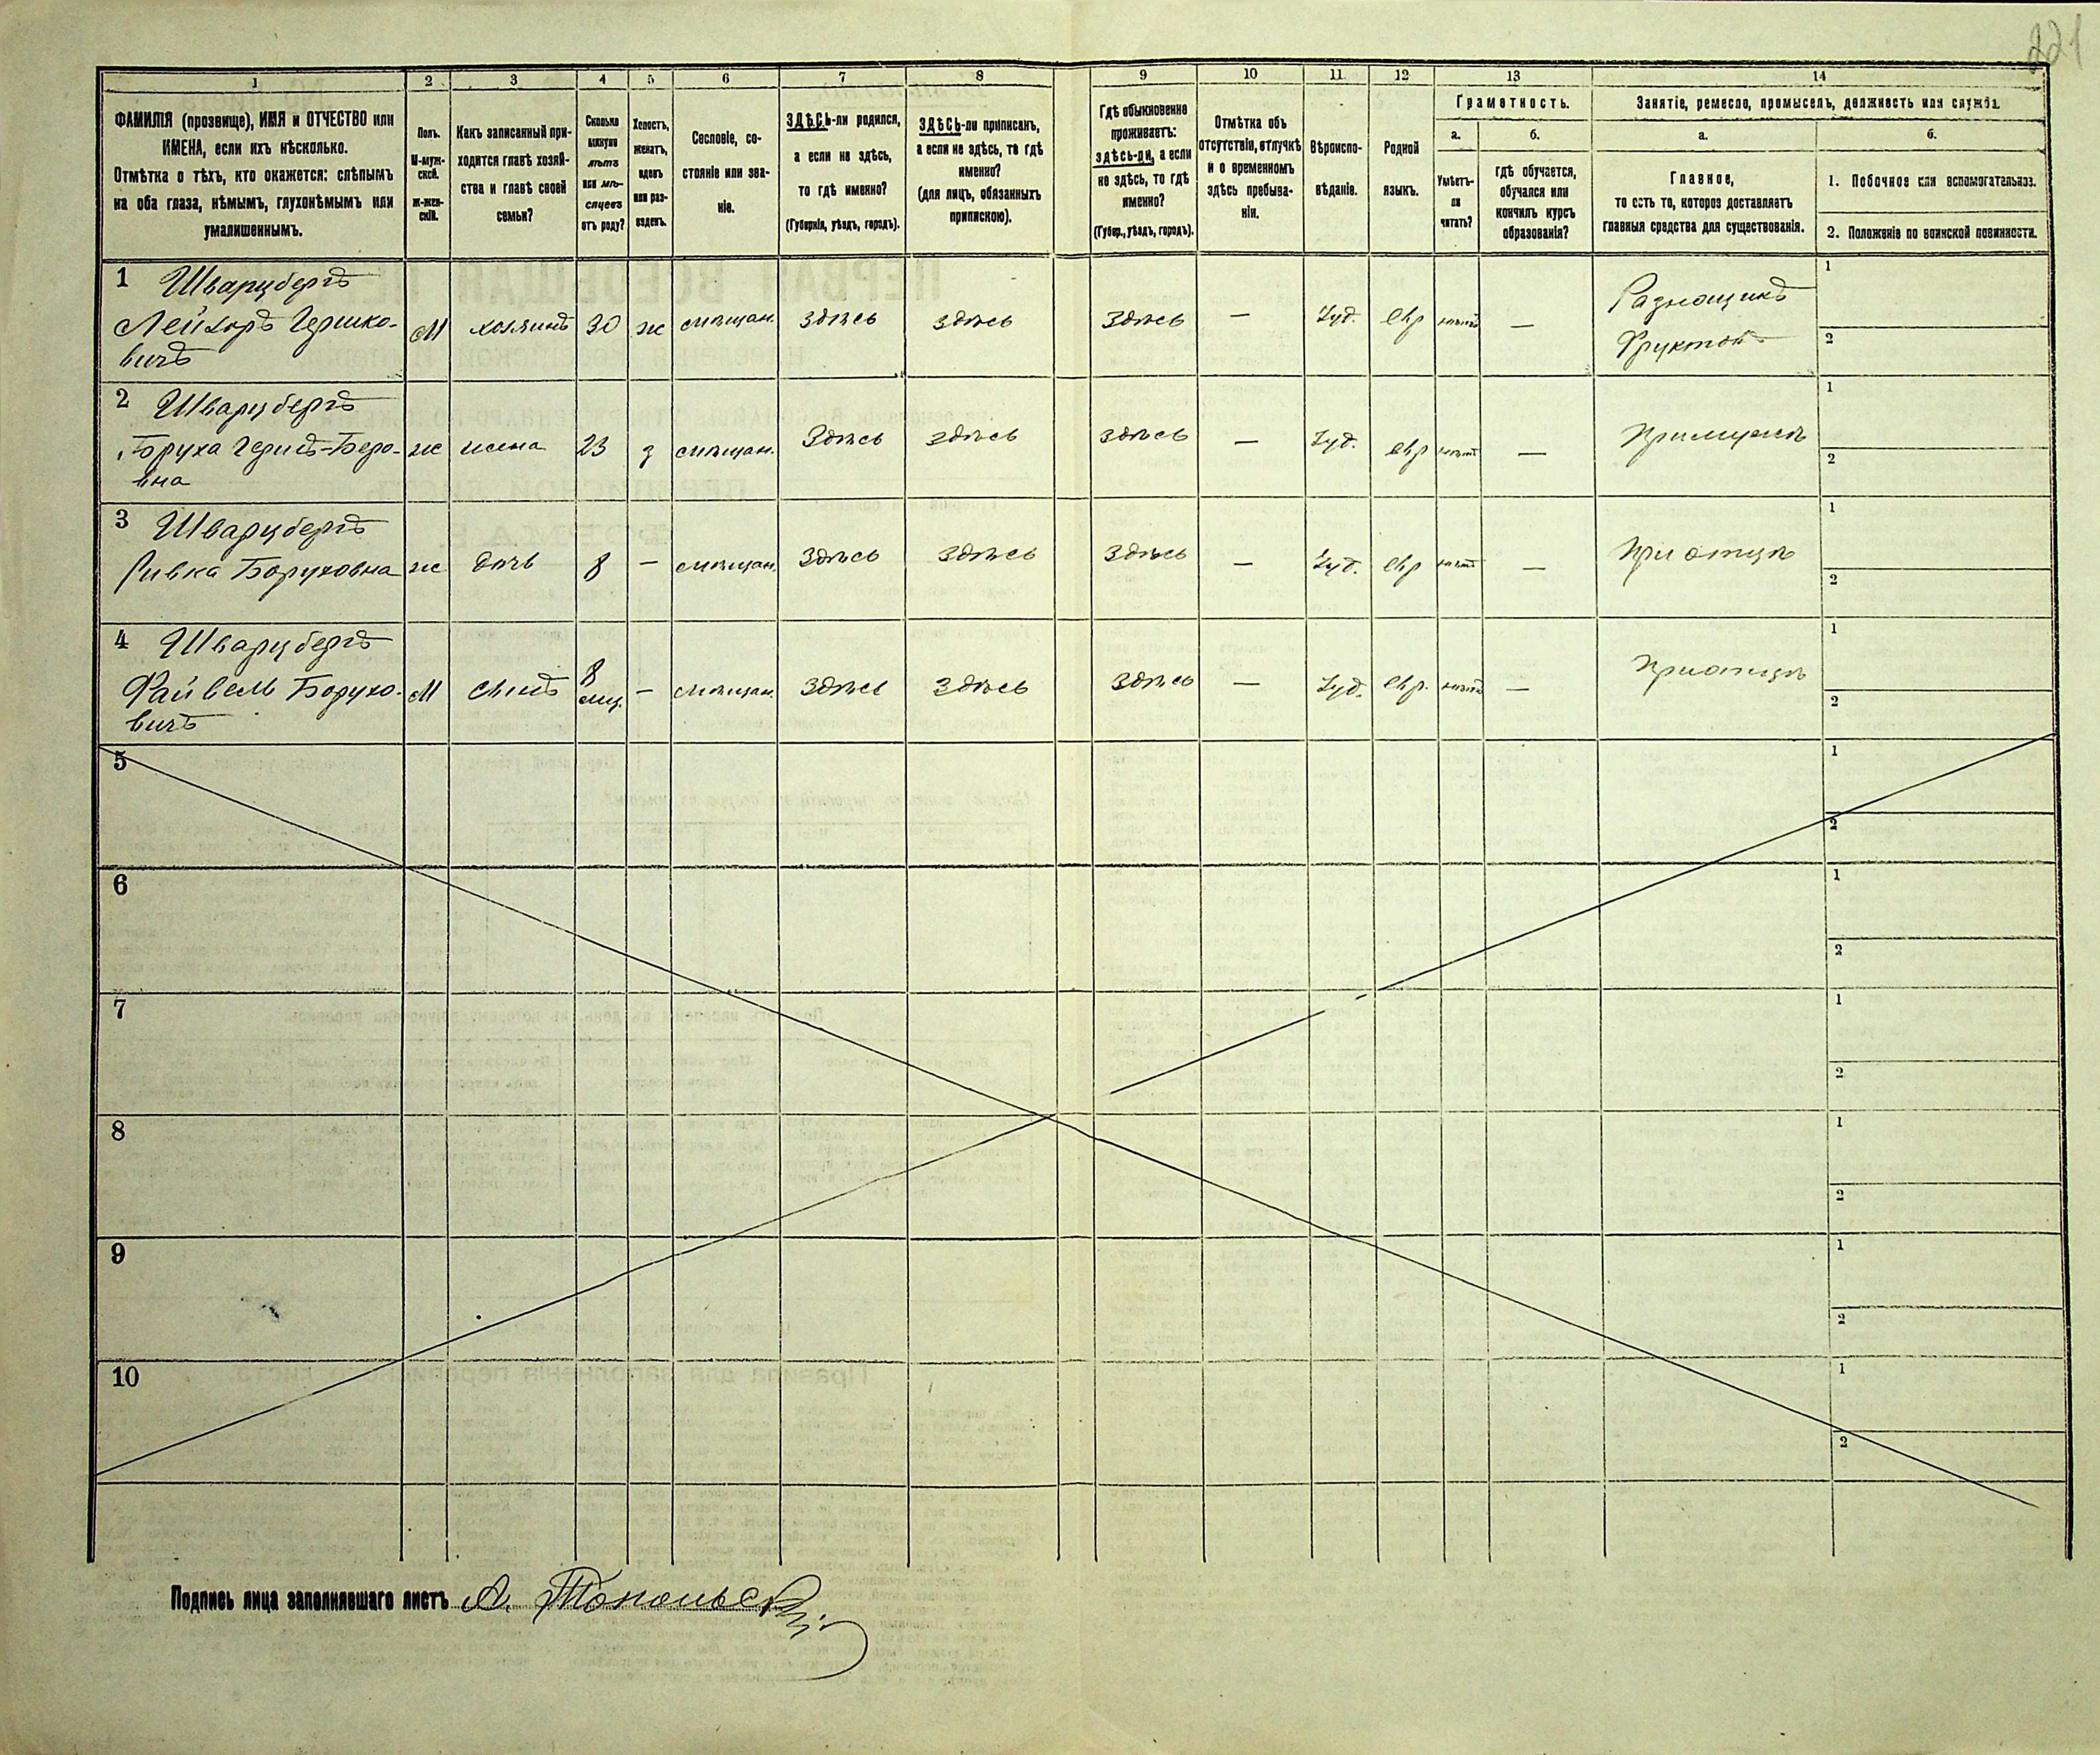 221
1 2 3 4 5 6 7 8 9 10 11 12 13 14
ФАМИЛІЯ (прозвище), ИМЯ и ОТЧЕСТВО или
ИМЕНА, если ихъ нѣсколько.
Отмѣтка о тѣхъ, кто окажется: слѣпымъ
на оба глаза, нѣмымъ, глухонѣмымъ или
умалишеннымъ.
Полъ.
М-муж-
ской.
Ж-жен-
скій.
Какъ записанный при-
ходится главѣ хозяй-
ства и главѣ своей
семьи?
Сколько
минуло
лѣтъ
или мѣ-
сяцевъ
отъ роду?
Холостъ,
женатъ,
вдовъ
или раз-
веденъ.
Сословіе, со-
стояніе или зва-
ніе.
ЗДѢСЬ-ли родился,
а если не здѣсь,
то гдѣ именно?
(Губернія, уѣздъ, городъ).
ЗДѢСЬ-ли приписанъ,
а если не здѣсь, то гдѣ
именно?
(для лицъ, обязанныхъ
припискою).
Гдѣ обыкновенно
проживаетъ:
здѣсь-ли, а если
не здѣсь, то гдѣ
именно?
(Губер., уѣздъ, городъ).
Отмѣтка объ
отсутствіи, отлучкѣ
и о временномъ
здѣсь пребыва-
ніи.
Вѣроиспо-
вѣданіе.
Родной
языкъ.
Грамотность.
а. б.
Умѣетъ-
ли
читать?
гдѣ обучается,
обучался или
кончилъ курсъ
образованія?
Занятіе, ремесло, промыселъ, должность или служба.
а. б.
Главное,
то есть то, которое доставляетъ
главныя средства для существованія.
1. Побочное или вспомогательное.
2. Положеніе по воинской повинности.
1 Шварцбергъ
Гершко-
вичъ
М хозяинъ 30 ж мѣщан. Здѣсь здѣсь Здѣсь — Іуд. евр нѣтъ — Разнощикъ
Фруктовъ
1
2
2 Шварцбергъ
Бруха Герш-Беро-
вна
ж жена 23 з мѣщан. Здѣсь здѣсь здѣсь — Іуд. евр нѣтъ — При мужѣ
1
2
3 Шварцбергъ
Ривка Боруховна
ж дочь 8 — мѣщан. Здѣсь Здѣсь Здѣсь — Іуд. евр нѣтъ — При отцѣ
1
2
4 Шварцбергъ
Файвель Борухо-
вичъ
М сынъ 8
мц. — мѣщан. Здѣсь Здѣсь Здѣсь — Іуд. евр. нѣтъ — При отцѣ
1
2
5 1
2
6 1
2
7 1
2
8 1
2
9 1
2
10 1
2
Подпись лица заполнявшаго листъ А.